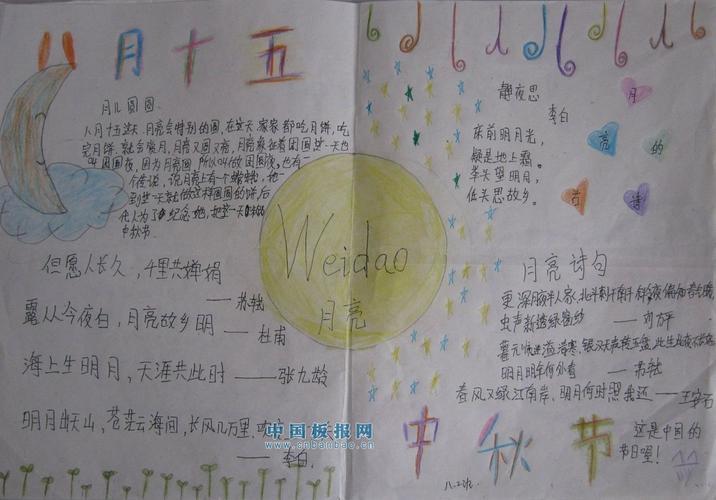 八月十五
月儿圆圆
八月十五这天,月亮会特别的圆,在这天家家都吃月饼,吃
完月饼,就会赏月,月亮又圆又亮,
叫团圆夜,因为月亮圆,所以叫做团圆夜,也有一
个传说,说月亮上有一个嫦娥,她一
到这一天就做这样圆圆的饼,后
代人为了纪念她,把这一天
中秋节
但愿人长久,千里共婵娟
——苏轼
露从今夜白,月亮故乡明——杜甫
海上生明月,天涯共此时——张九龄
明月出天山,苍茫云海间,长风几万里,
——李白
Weidao
月亮
静夜思
李白
床前明月光,
疑是地上霜。
举头望明月,
低头思故乡。
月
亮
的
古
诗
月亮诗句
更深月色半人家,北斗阑干南斗
虫声新透绿窗纱 ——刘方平
暮云收尽溢清寒,银汉无声转玉盘,此生此夜不长好
明月明年何处看 ——苏轼
春风又绿江南岸,明月何时照我还——王安石
中秋节
这是中国的
节日喔!
八.2班
中国板报网
www.cnbanbao.cn